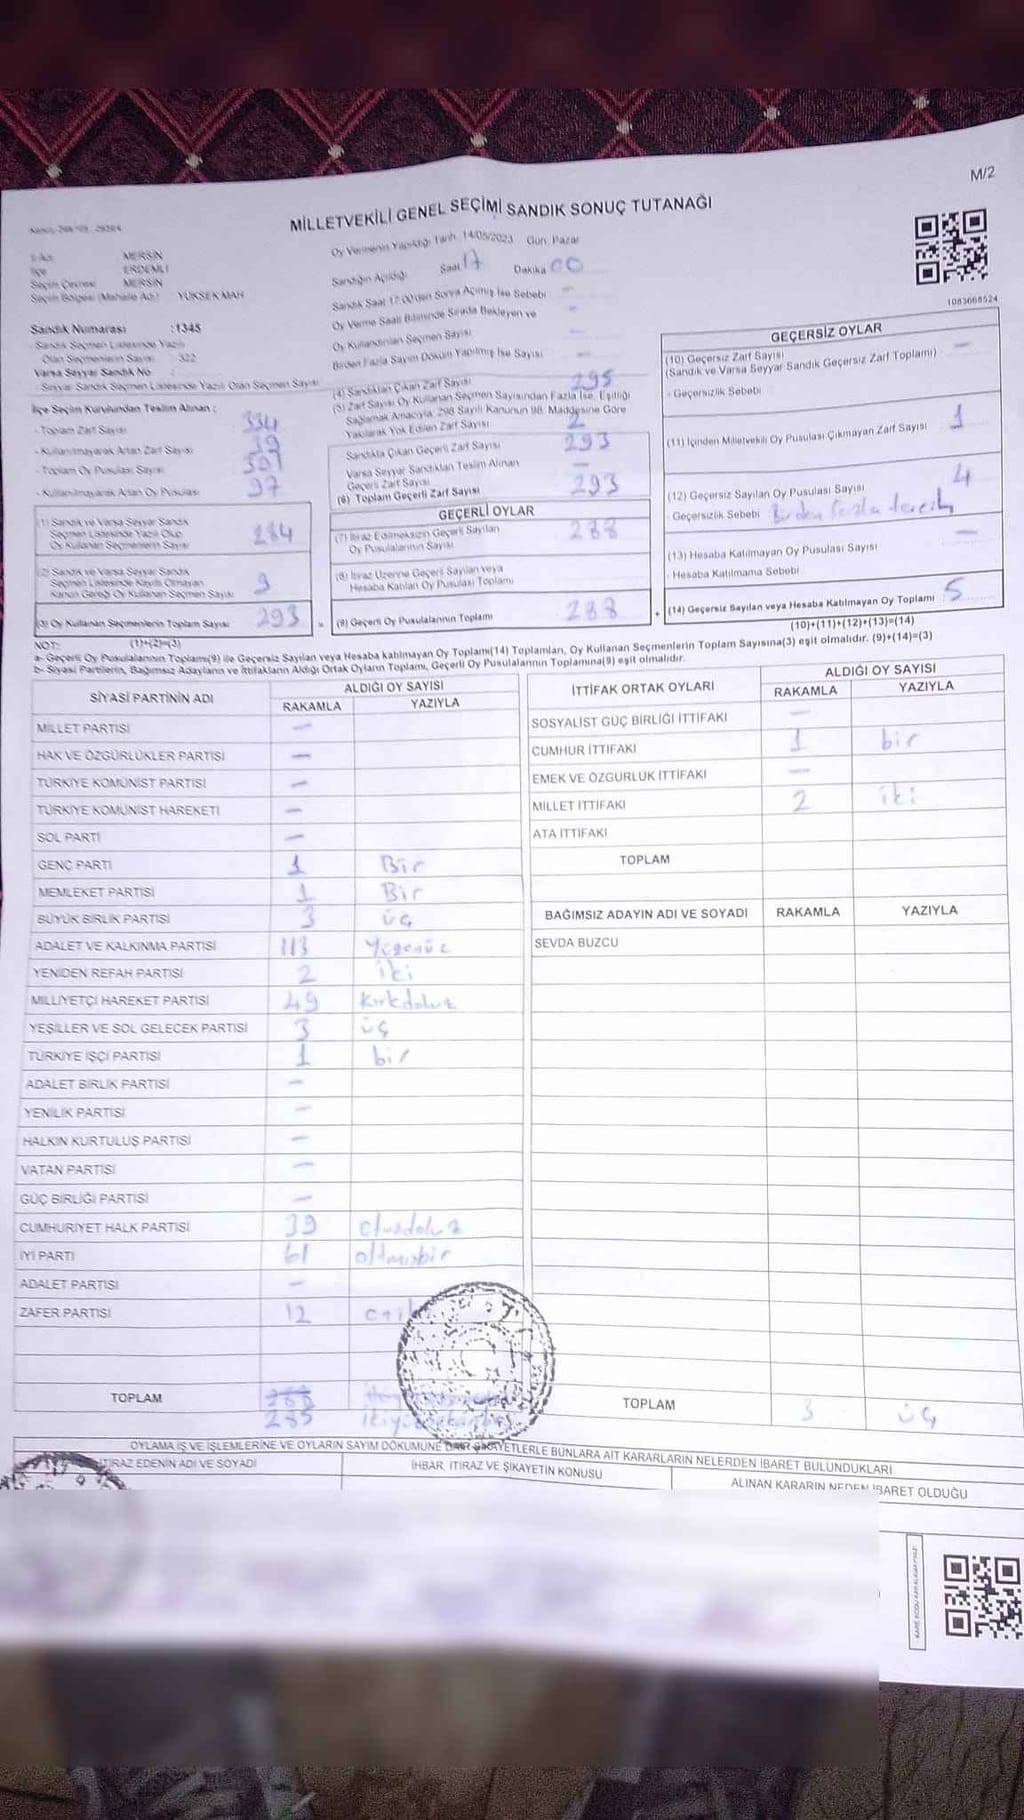 M/2
MİLLETVEKİLİ GENEL SEÇİMİ SANDIK SONUÇ TUTANAĞI
1083668524
MERSİN
İlçe ERDEMLİ
Seçim Çevresi MERSİN
Seçim Bölgesi (Mahalle Adı) YÜKSEK MAH
Sandık Numarası :1345
- Sandık Seçmen Listesinde Yazılı
Olan Seçmenlerin Sayısı : 322
Varsa Seyyar Sandık No :
- Seyyar Sandık Seçmen Listesinde Yazılı Olan Seçmen Sayısı
Oy Vermenin Yapıldığı Tarih 14/05/2023 Gün: Pazar
Sandığın Açıldığı Saat 17 Dakika 00
Sandık Saat 17:00'den Sonra Açılmış İse Sebebi : -
Oy Verme Saati Bitiminde Sırada Bekleyen ve
Oy Kullandırılan Seçmen Sayısı -
Birden Fazla Sayım Döküm Yapılmış İse Sayısı -
İlçe Seçim Kurulundan Teslim Alınan :
- Toplam Zarf Sayısı 334
- Kullanılmayarak Artan Zarf Sayısı 39
- Toplam Oy Pusulası Sayısı
- Kullanılmayarak Artan Oy Pusulası 97
(1) Sandık ve Varsa Seyyar Sandık
Seçmen Listesinde Yazılı Olup
Oy Kullanan Seçmenlerin Sayısı 284
(2) Sandık ve Varsa Seyyar Sandık
Seçmen Listesinde Kayıtlı Olmayan
Kanun Gereği Oy Kullanan Seçmen Sayısı 9
(3) Oy Kullanan Seçmenlerin Toplam Sayısı 293
(4) Sandıktan Çıkan Zarf Sayısı 295
(5) Zarf Sayısı Oy Kullanan Seçmen Sayısından Fazla İse, Eşitliği
Sağlamak Amacıyla, 298 Sayılı Kanunun 98. Maddesine Göre
Yakılarak Yok Edilen Zarf Sayısı 2
Sandıkta Çıkan Geçerli Zarf Sayısı 293
Varsa Seyyar Sandıktan Teslim Alınan
Geçerli Zarf Sayısı -
(6) Toplam Geçerli Zarf Sayısı 293
GEÇERLİ OYLAR
(7) İtiraz Edilmeksizin Geçerli Sayılan
Oy Pusulalarının Sayısı 288
(8) İtiraz Üzerine Geçerli Sayılan veya
Hesaba Katılan Oy Pusulası Toplamı
= (9) Geçerli Oy Pusulalarının Toplamı 288 +
GEÇERSİZ OYLAR
(10) Geçersiz Zarf Sayısı -
(Sandık ve Varsa Seyyar Sandık Geçersiz Zarf Toplamı)
- Geçersizlik Sebebi
(11) İçinden Milletvekili Oy Pusulası Çıkmayan Zarf Sayısı 1
(12) Geçersiz Sayılan Oy Pusulası Sayısı 4
- Geçersizlik Sebebi : Birden fazla tercih
(13) Hesaba Katılmayan Oy Pusulası Sayısı -
- Hesaba Katılmama Sebebi
(14) Geçersiz Sayılan veya Hesaba Katılmayan Oy Toplamı 5
(10)+(11)+(12)+(13)=(14)
NOT: (1)+(2)=(3)
a- Geçerli Oy Pusulalarının Toplamı(9) ile Geçersiz Sayılan veya Hesaba katılmayan Oy Toplamı(14) Toplamları, Oy Kullanan Seçmenlerin Toplam Sayısına(3) eşit olmalıdır. (9)+(14)=(3)
b- Siyasi Partilerin, Bağımsız Adayların ve İttifakların Aldığı Ortak Oyların Toplamı, Geçerli Oy Pusulalarının Toplamına(9) eşit olmalıdır.
SİYASİ PARTİNİN ADI ALDIĞI OY SAYISI
RAKAMLA YAZIYLA
MİLLET PARTİSİ -
HAK VE ÖZGÜRLÜKLER PARTİSİ -
TÜRKİYE KOMÜNİST PARTİSİ -
TÜRKİYE KOMÜNİST HAREKETİ -
SOL PARTİ -
GENÇ PARTİ 1 Bir
MEMLEKET PARTİSİ 1 Bir
BÜYÜK BİRLİK PARTİSİ 3 üç
ADALET VE KALKINMA PARTİSİ 113
YENİDEN REFAH PARTİSİ 2 iki
MİLLİYETÇİ HAREKET PARTİSİ 49 Kırkdokuz
YEŞİLLER VE SOL GELECEK PARTİSİ 3 üç
TÜRKİYE İŞÇİ PARTİSİ 1 bir
ADALET BİRLİK PARTİSİ -
YENİLİK PARTİSİ -
HALKIN KURTULUŞ PARTİSİ -
VATAN PARTİSİ -
GÜÇ BİRLİĞİ PARTİSİ -
CUMHURİYET HALK PARTİSİ 39 otuzdokuz
İYİ PARTİ 61 altmışbir
ADALET PARTİSİ -
ZAFER PARTİSİ 12
TOPLAM
285
İTTİFAK ORTAK OYLARI ALDIĞI OY SAYISI
RAKAMLA YAZIYLA
SOSYALİST GÜÇ BİRLİĞİ İTTİFAKI -
CUMHUR İTTİFAKI 1 bir
EMEK VE ÖZGÜRLÜK İTTİFAKI -
MİLLET İTTİFAKI 2 iki
ATA İTTİFAKI
TOPLAM
BAĞIMSIZ ADAYIN ADI VE SOYADI RAKAMLA YAZIYLA
SEVDA BUZCU
TOPLAM 3 üç
OYLAMA İŞ VE İŞLEMLERİNE VE OYLARIN SAYIM DÖKÜMÜNE DAİR ŞİKAYETLERLE BUNLARA AİT KARARLARIN NELERDEN İBARET BULUNDUKLARI
İTİRAZ EDENİN ADI VE SOYADI İHBAR, İTİRAZ VE ŞİKAYETİN KONUSU ALINAN KARARIN NEDEN İBARET OLDUĞU